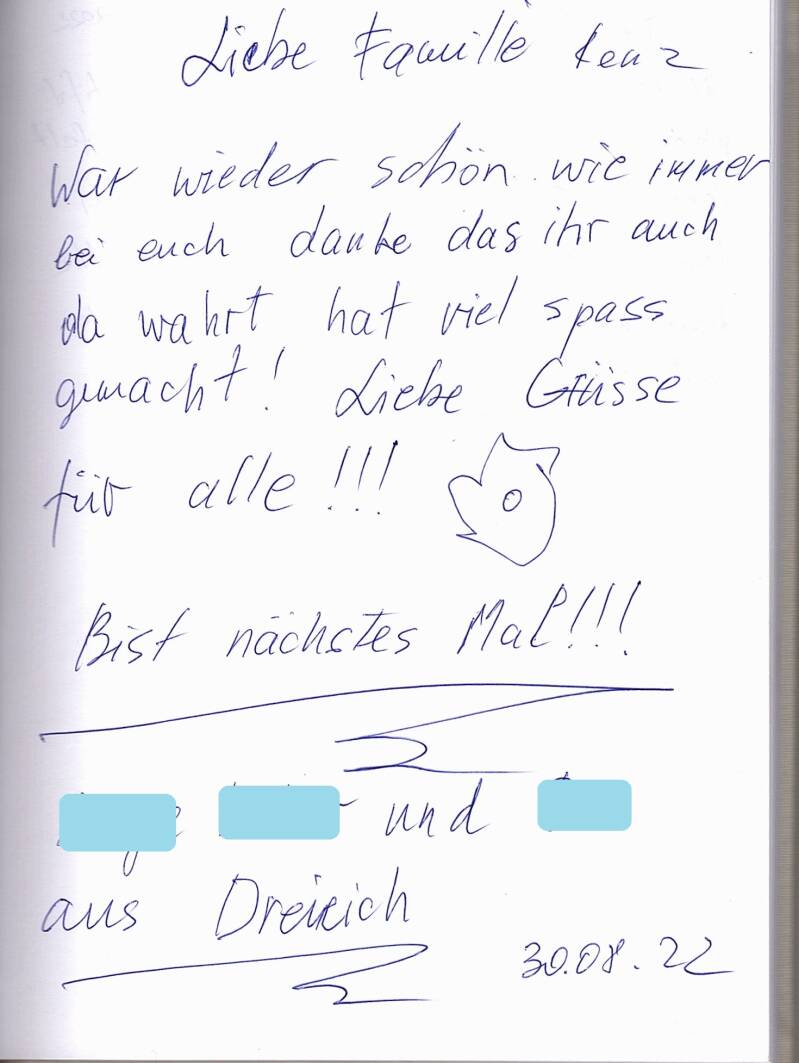 Liebe Familie Renz
War wieder schön wie immer
bei euch danke das ihr auch
da wahrt hat viel spass
gemacht! Liebe Grüsse
für alle!!!
Bist nächstes Mal!!!
und
aus Dreieich
30.08.22